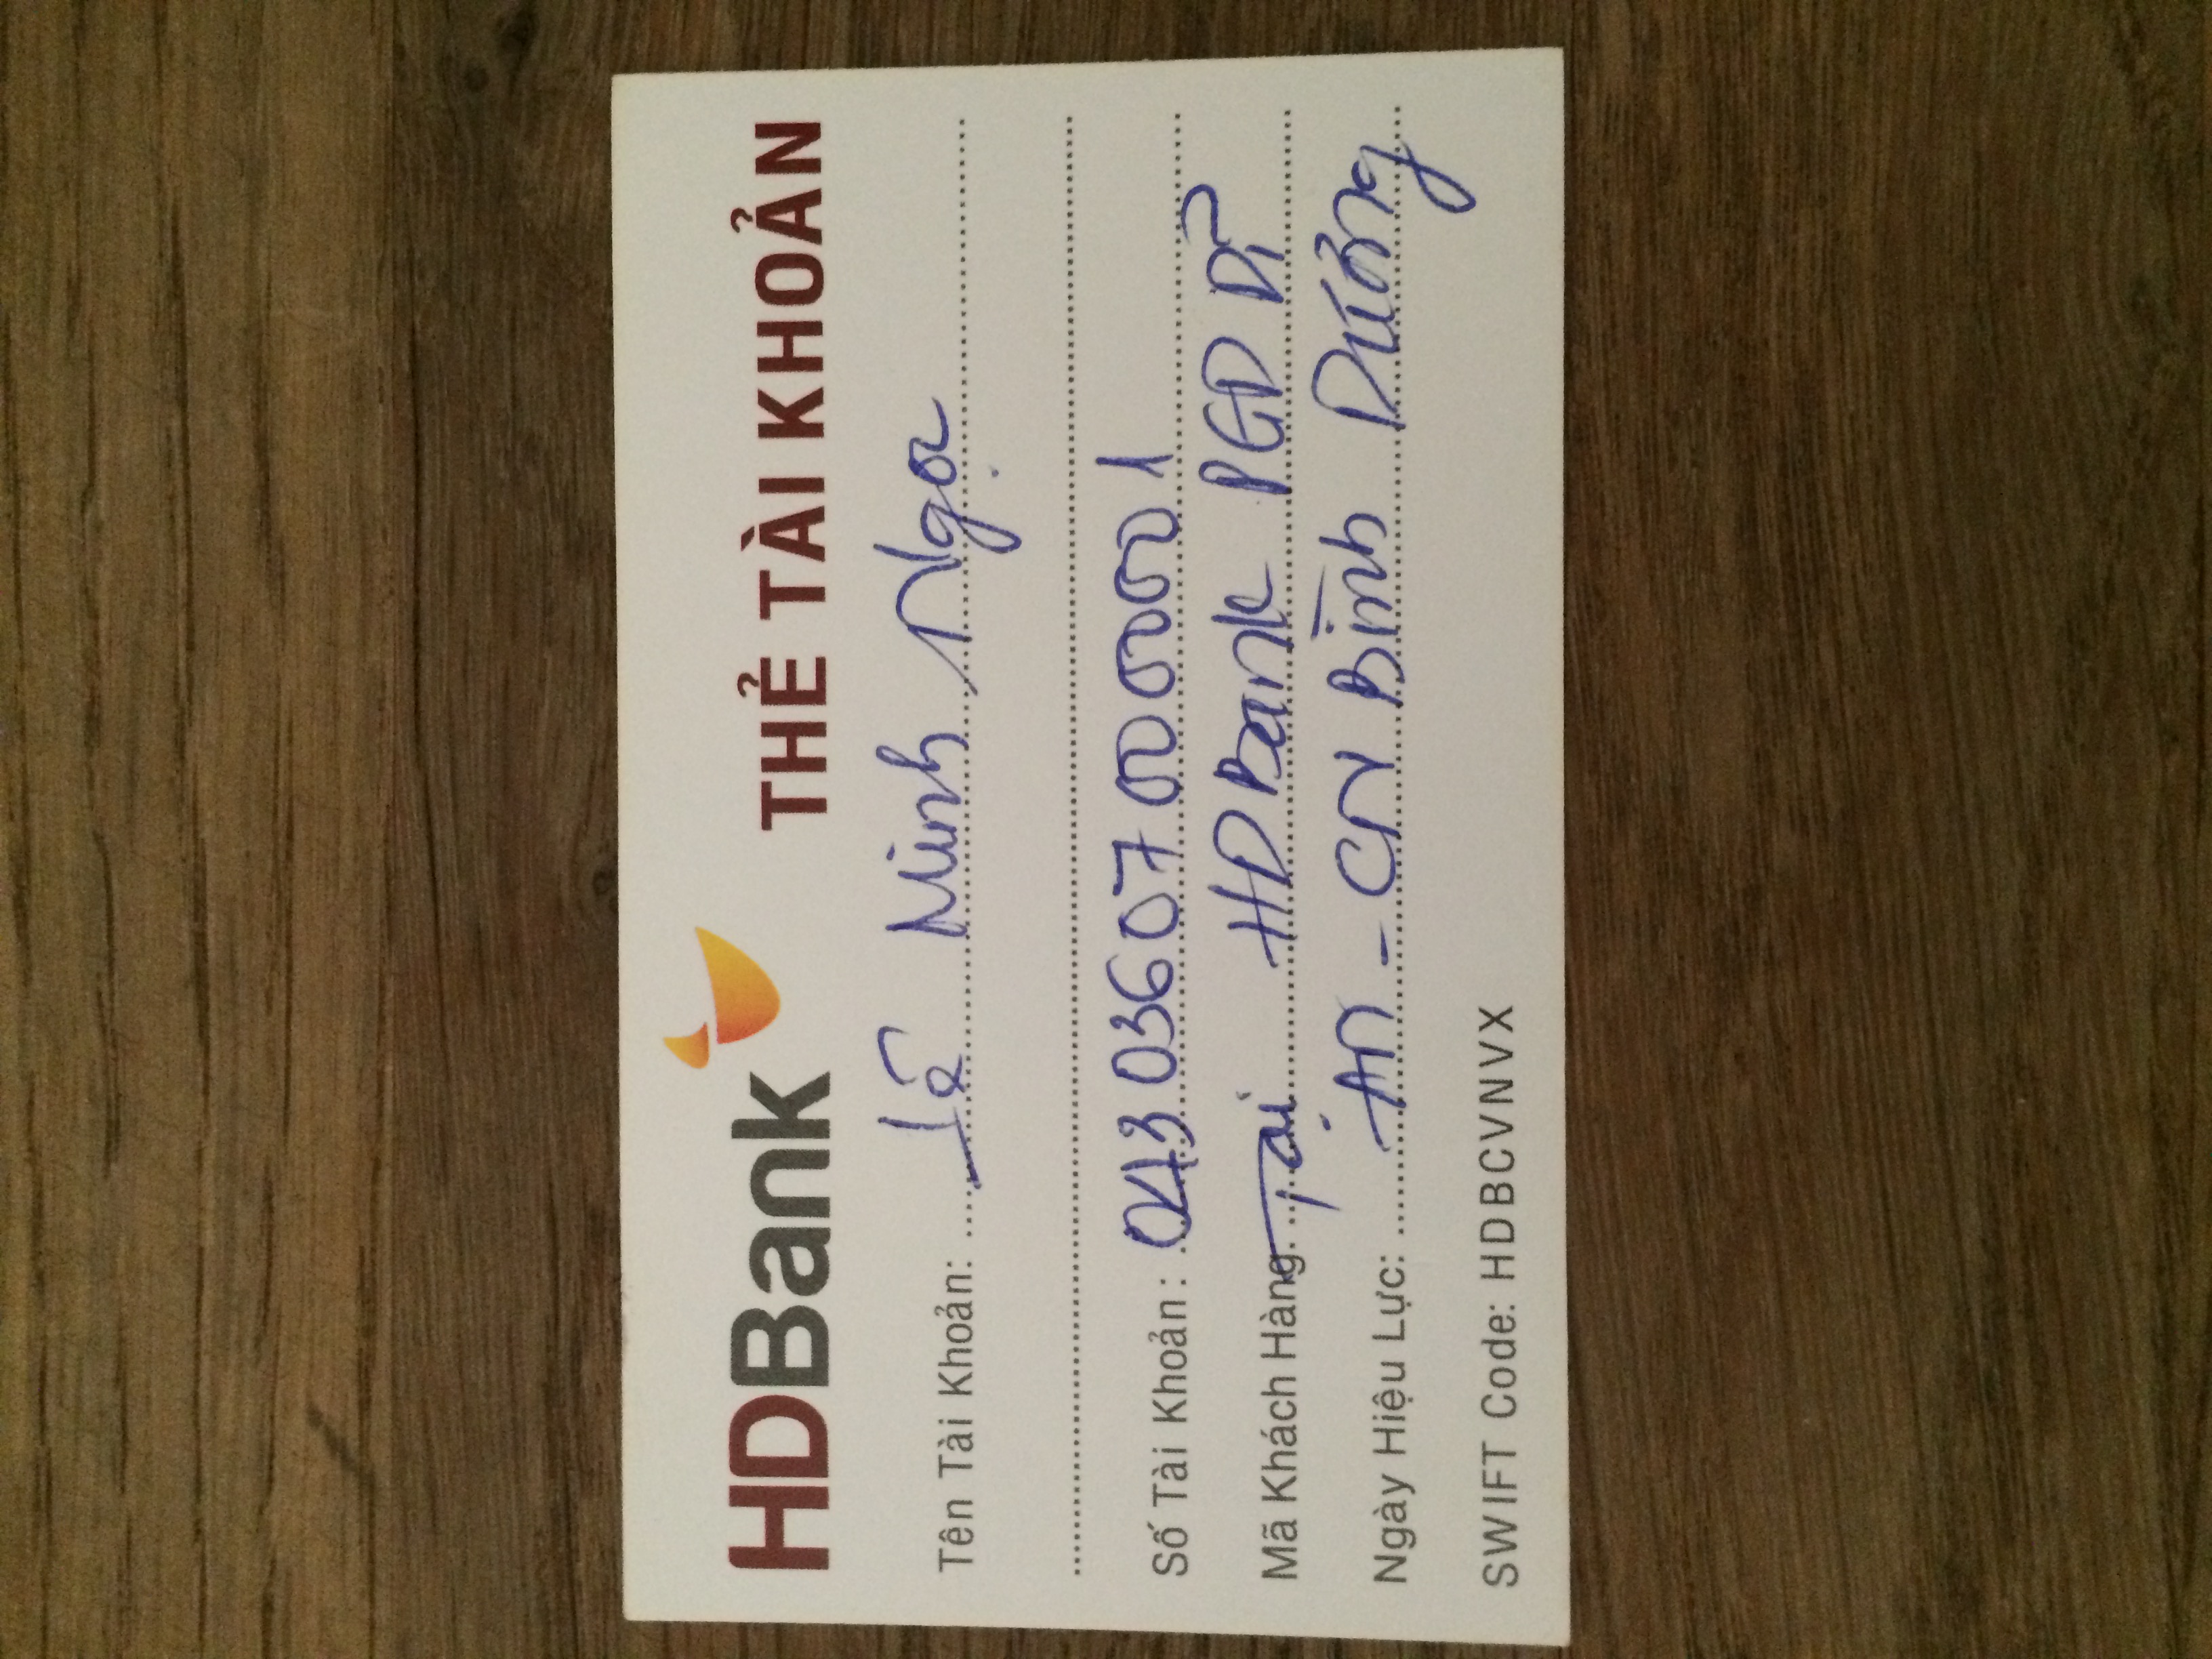 HDBank
THẺ TÀI KHOẢN
Tên Tài Khoản: Lê Minh Ngọc
Số Tài Khoản: 043036070000001
Mã Khách Hàng: Tại HDBank PGD Dĩ
Ngày Hiệu Lực: An - CN Bình Dương
SWIFT Code: HDBCVNVX